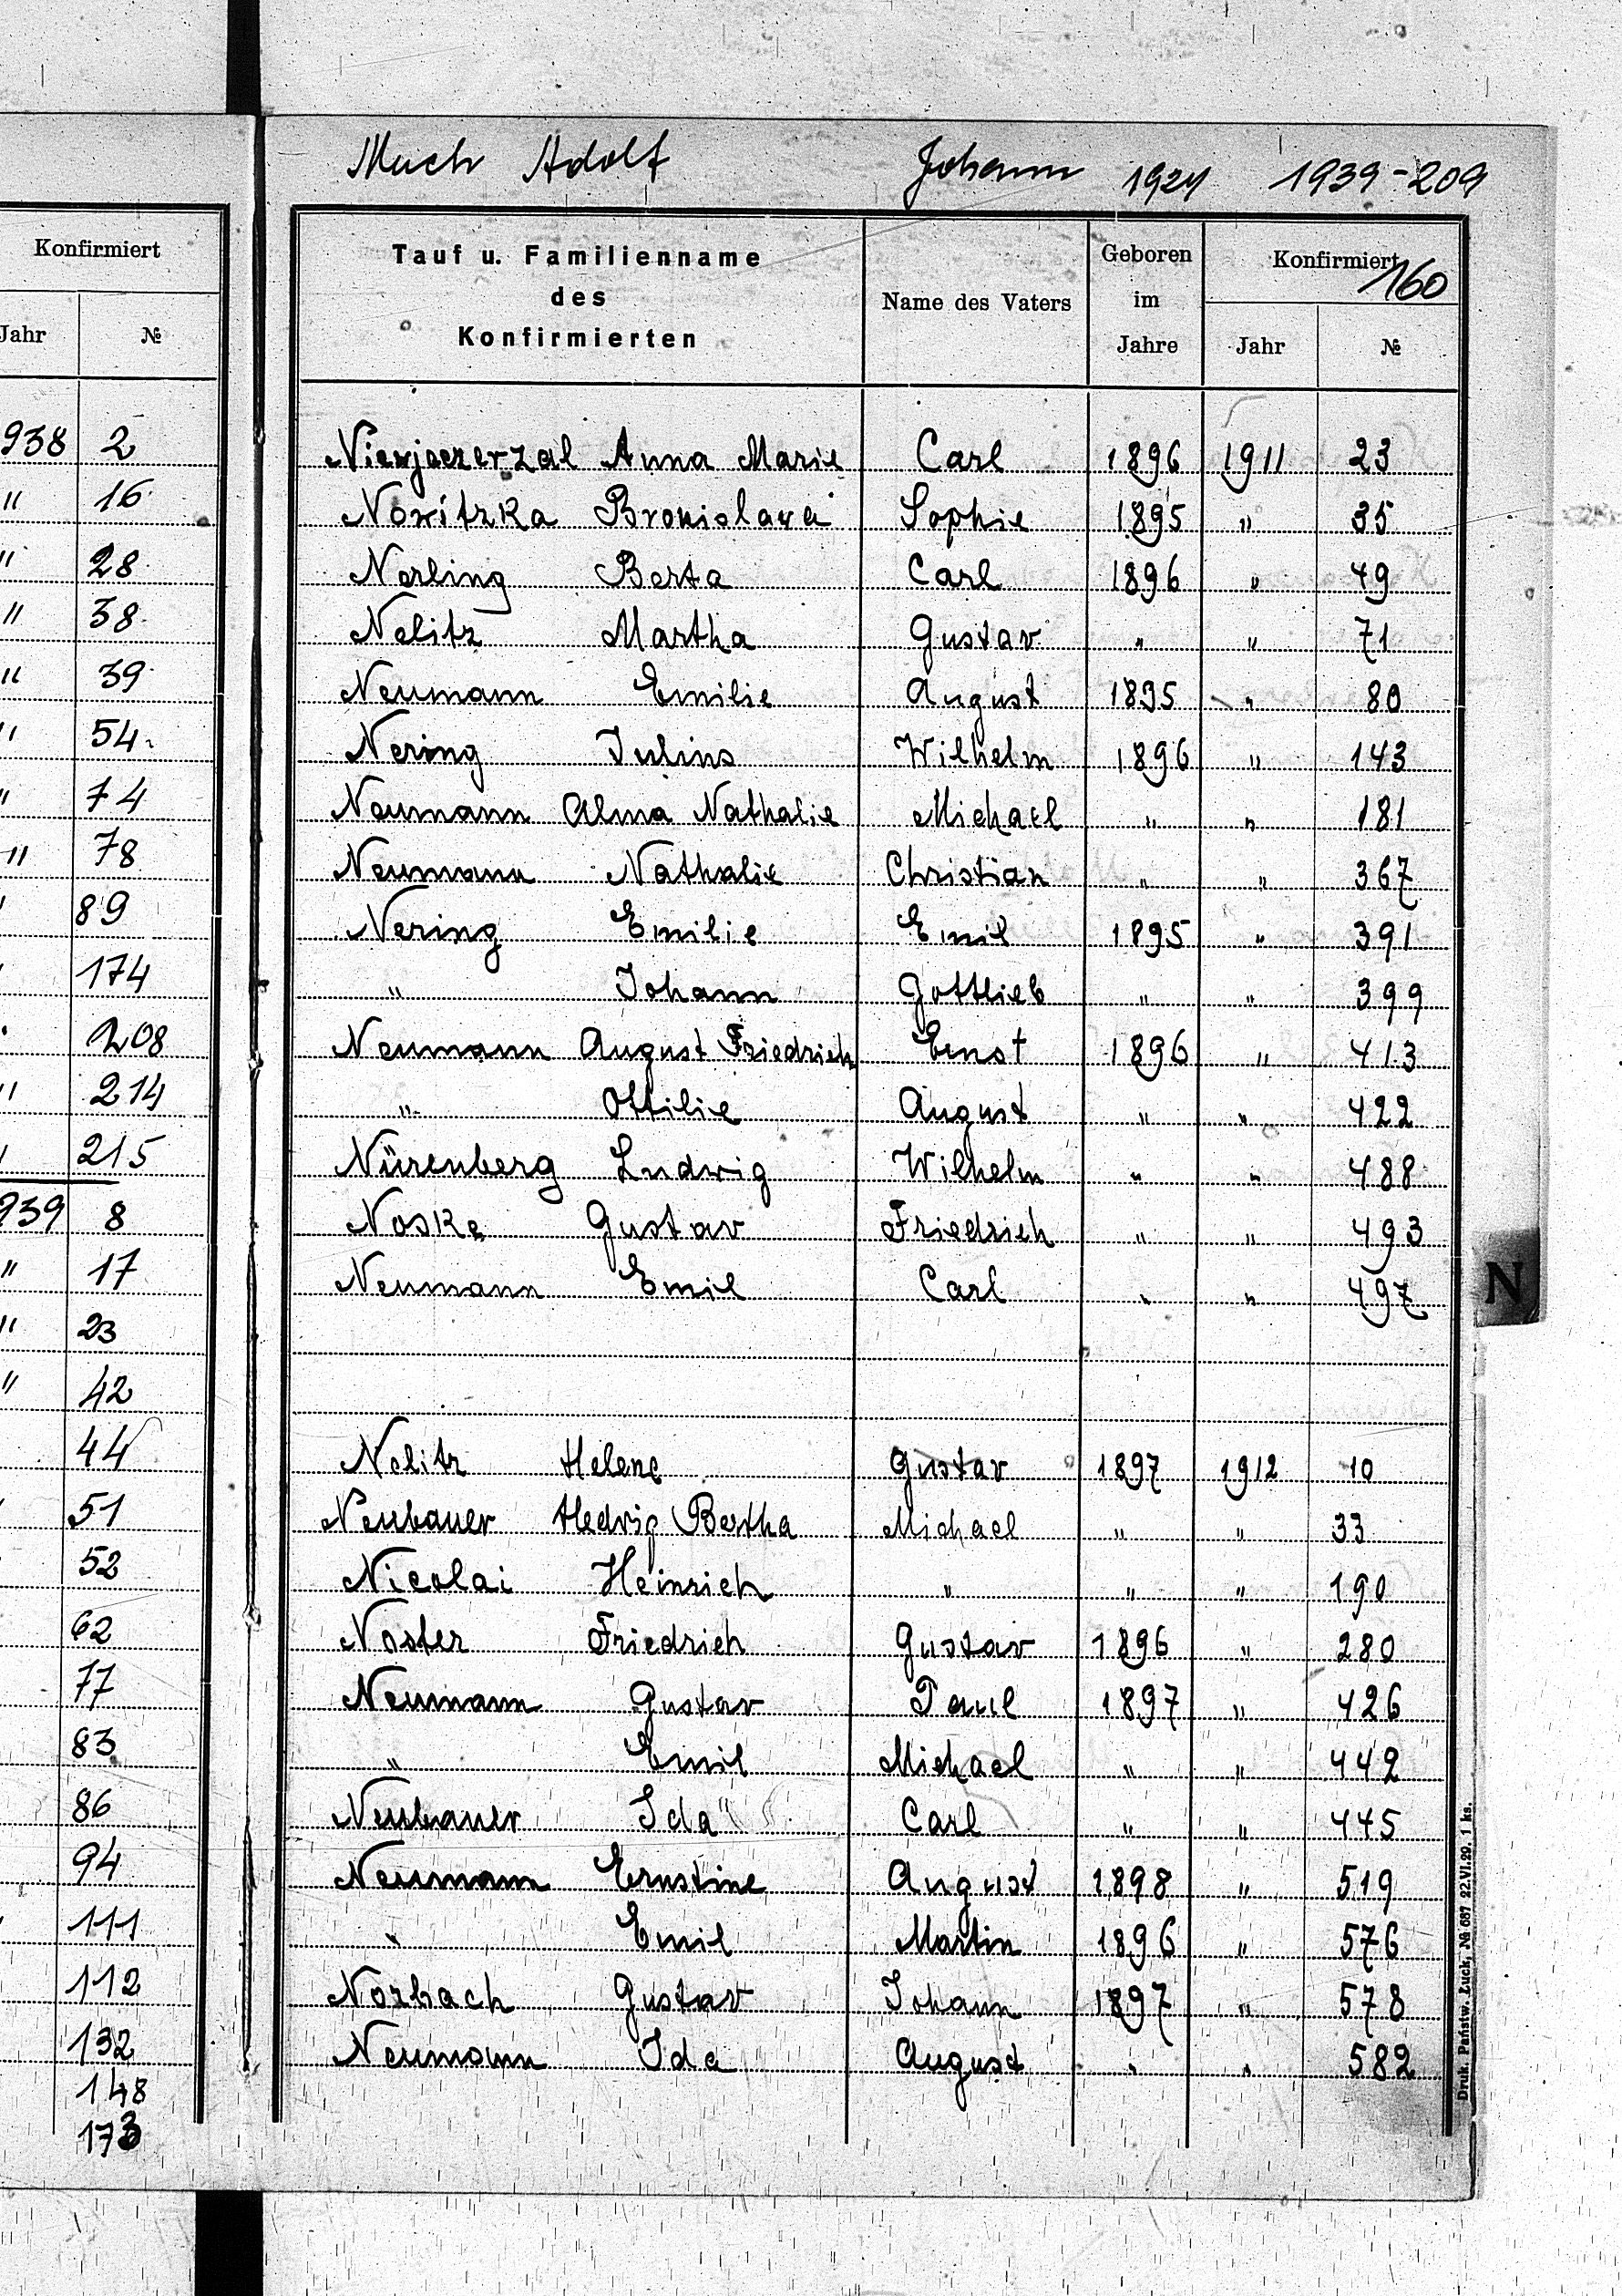 Konfirmiert
Jahr №
938 2
" 16
" 28
" 38
" 39
" 54
" 74
" 78
" 89
" 174
" 208
" 214
" 215
939 8
" 17
" 23
" 42
44
51
52
62
77
83
86
94
111
112
132
148
173
Much Adolf Johann 1924 1939-209
160
Tauf u. Familienname des Konfirmierten Name des Vaters Geboren im Jahre Konfirmiert Jahr №
Anna Marie Carl 1896 1911 23
Nowitzka Bronislawa Sophie 1895 " 35
Nerling Berta Carl 1896 " 49
Nelitz Martha Gustav " " 71
Neumann Emilie August 1895 " 80
Nering Julius Wilhelm 1896 " 143
Neumann Alma Nathalie Michael " " 181
Neumann Nathalie Christian " " 367
Nering Emilie Emil 1895 " 391
" Johann Gottlieb " " 399
Neumann August Friedrich Ernst 1896 " 413
" Ottilie August " " 422
Nürenberg Ludwig Wilhelm " " 488
Noske Gustav Friedrich " " 493
Neumann Emil Carl " " 497
N
Nelitz Helene Gustav 1897 1912 10
Neubauer Hedwig Bertha Michael " " 33
Nicolai Heinrich " " " 190
Noster Friedrich Gustav 1896 " 280
Neumann Gustav Paul 1897 " 426
" Emil Michael " " 442
Neubauer Ida Carl " " 445
Neumann Ernstine August 1898 " 519
" Emil Martin 1896 " 576
Norbach Gustav Johann 1897 " 578
Neumann Ida August " " 582
Druk. Państw. Łuck, № 687 22.VI.29. 1 ks.